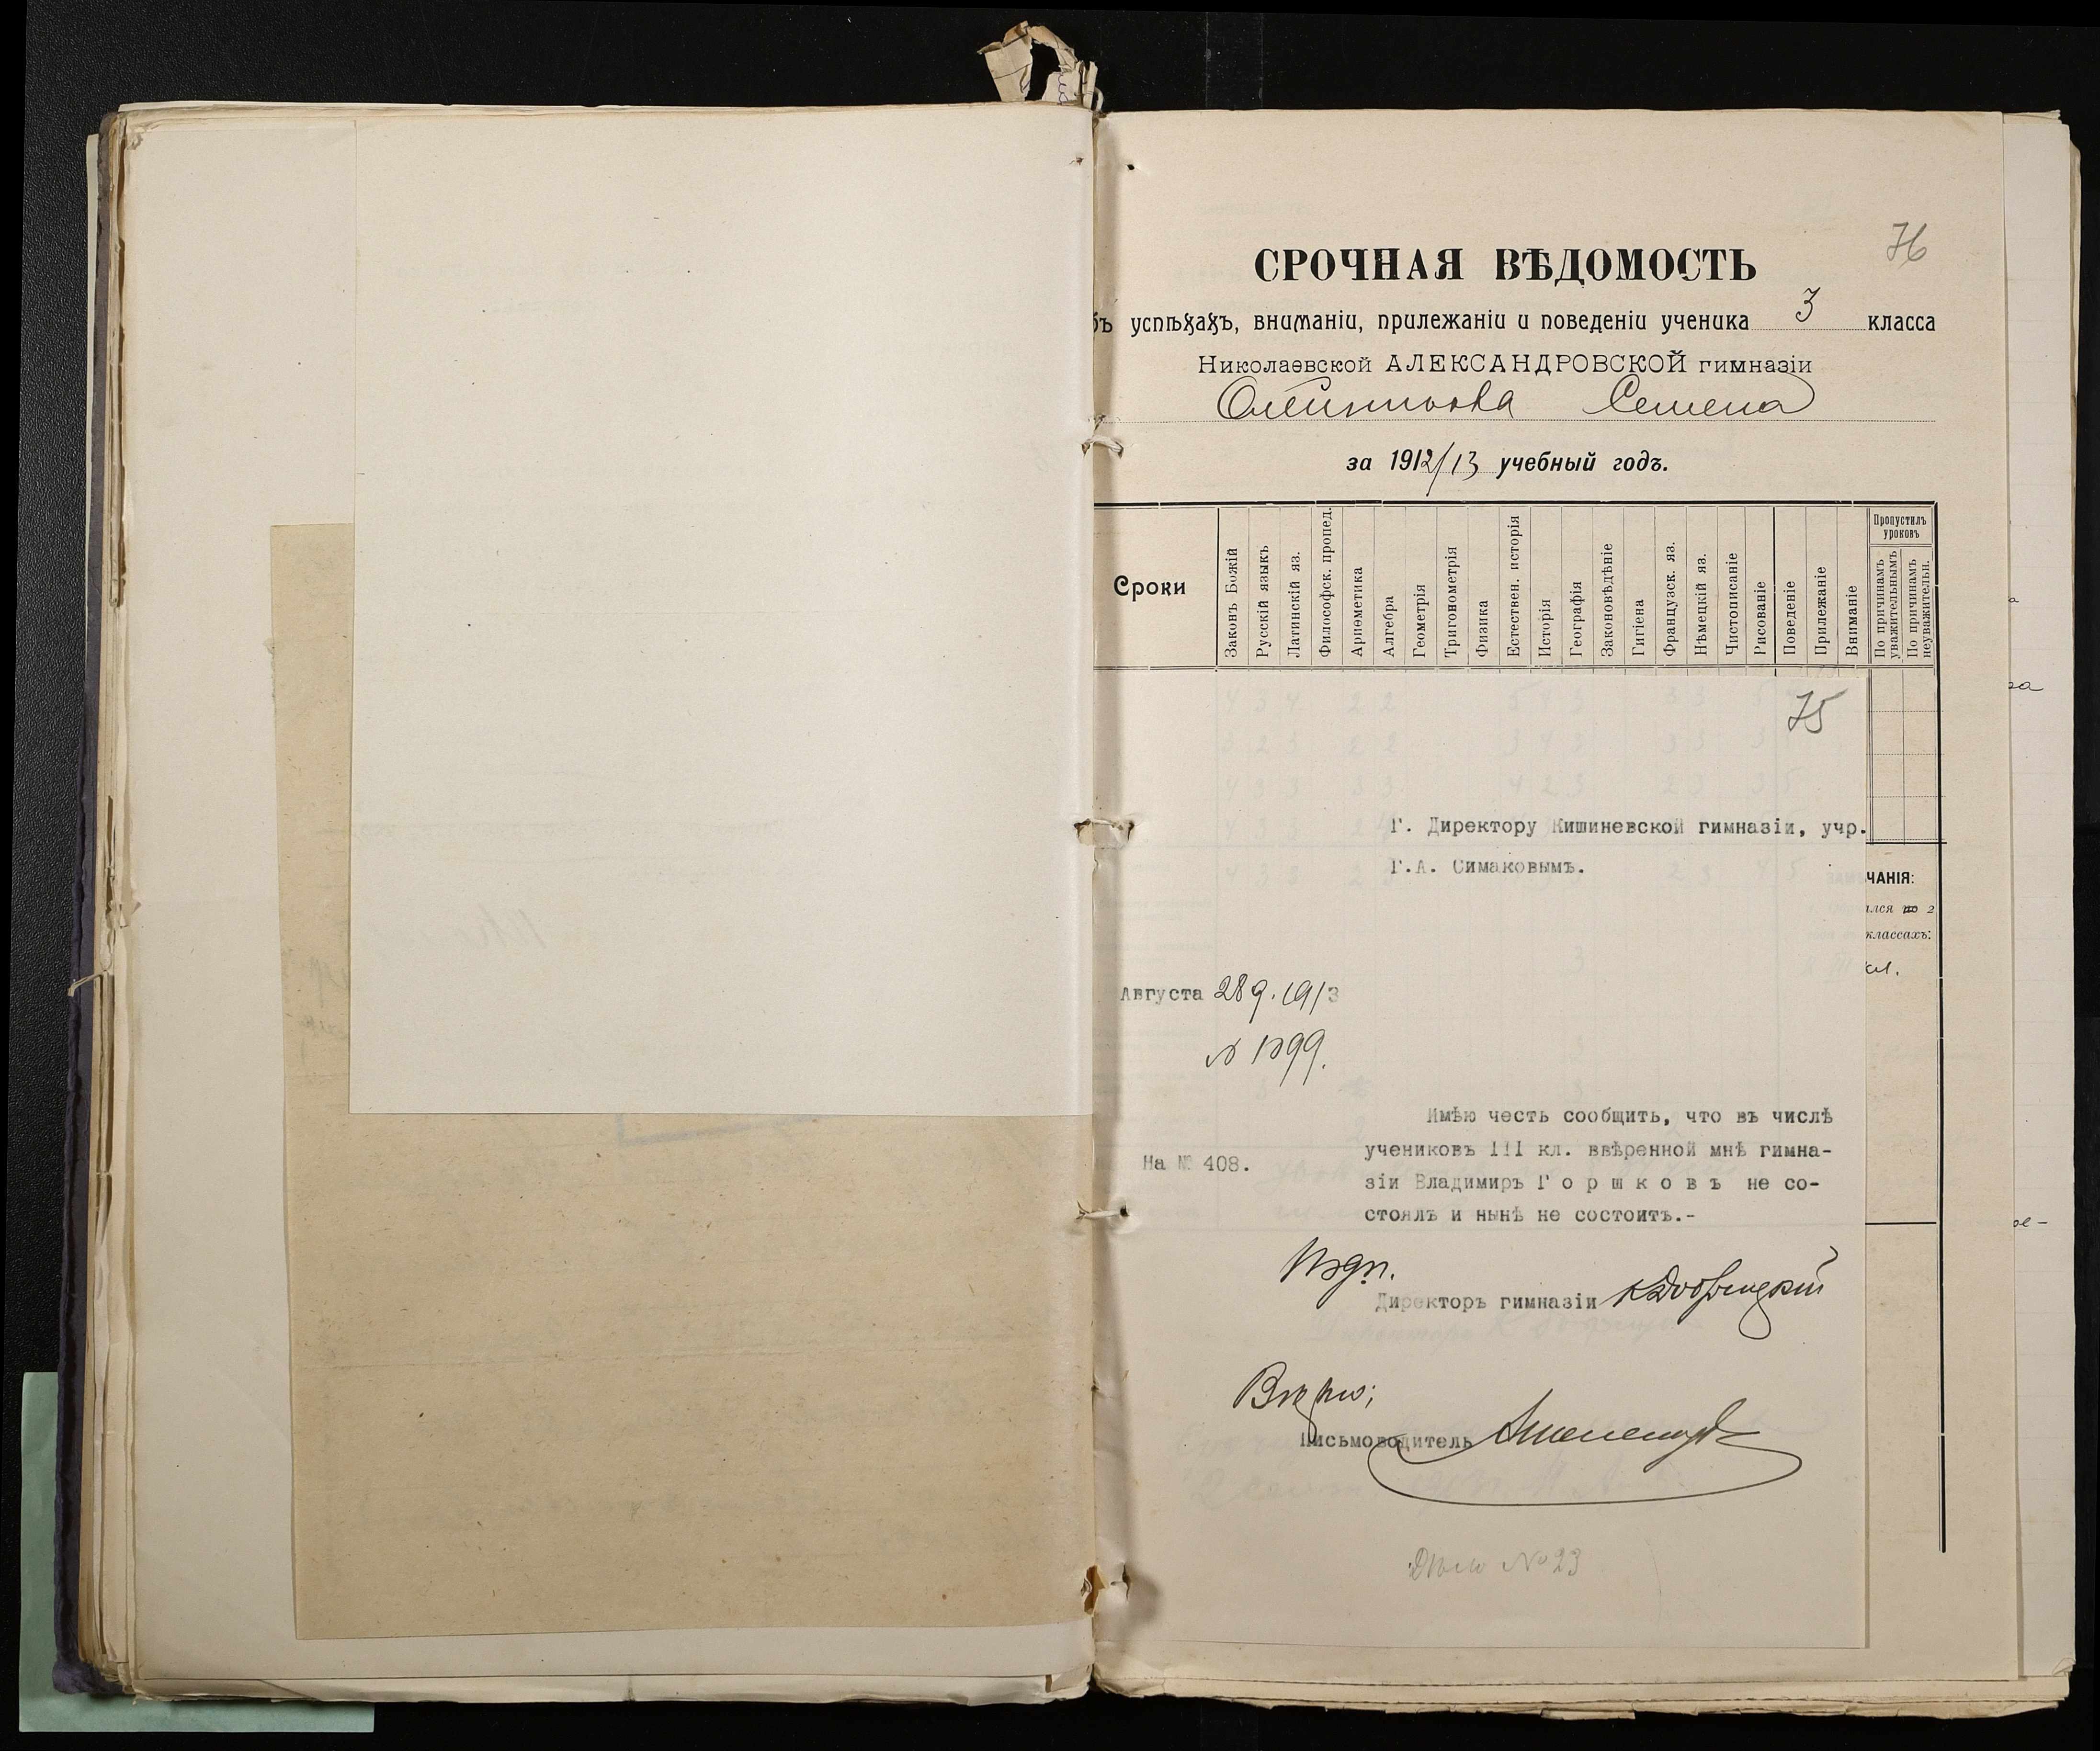 76
СРОЧНАЯ ВѢДОМОСТЬ
бъ успѣхахъ, вниманіи, прилежаніи и поведеніи ученика 3 класса
Николаевской АЛЕКСАНДРОВСКОЙ гимназіи
Олейникова Семена
за 1912/13 учебный годъ.
Сроки
Законъ Божій
Русскій языкъ
Латинскій яз.
Философск. пропед.
Ариѳметика
Алгебра
Геометрія
Тригонометрія
Физика
Естествен. исторія
Исторія
Географія
Законовѣдѣніе
Гигіена
Французск. яз.
Нѣмецкій яз.
Чистописаніе
Рисованіе
Поведеніе
Прилежаніе
Вниманіе
Пропустилъ
уроковъ
По причинамъ
уважительнымъ
По причинамъ
неуважительн.
75
Г. Директору Кишиневской гимназіи, учр.
Г.А. Симаковымъ.
ЧАНІЯ:
ался по 2
классахъ:
кл.
Августа 28 д. 1913
№ 1399.
Имѣю честь сообщить, что въ числѣ
учениковъ III кл. ввѣренной мнѣ гимна-
На № 408.
зіи Владимиръ Г о р ш к о в ъ не со-
стоялъ и нынѣ не состоитъ.-
Подп.
Директоръ гимназіи
Вѣрно:
Письмоводитель
Дѣло № 23